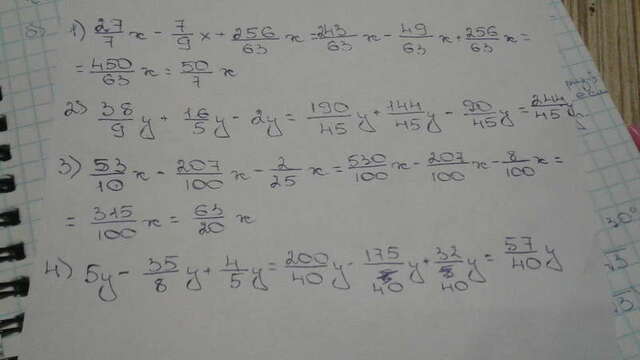 1) 27/7 x - 7/9 x + 256/63 x = 243/63 x - 49/63 x + 256/63 x =
= 450/63 x = 50/7 x
2) 38/9 y + 16/5 y - 2y = 190/45 y + 144/45 y - 90/45 y = 244/45 y
3) 53/10 x - 207/100 x - 2/25 x = 530/100 x - 207/100 x - 8/100 x =
= 315/100 x = 63/20 x
4) 5y - 35/8 y + 4/5 y = 200/40 y - 175/40 y + 32/40 y = 57/40 y
30°